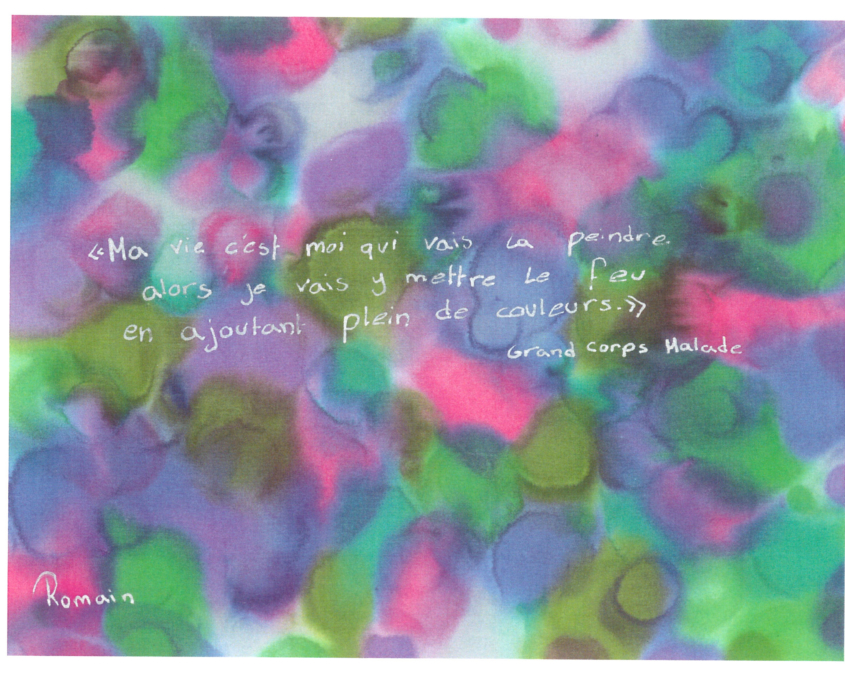 «Ma vie c'est moi qui vais la peindre.
alors je vais y mettre le feu
en ajoutant plein de couleurs.»
Grand Corps Malade
Romain